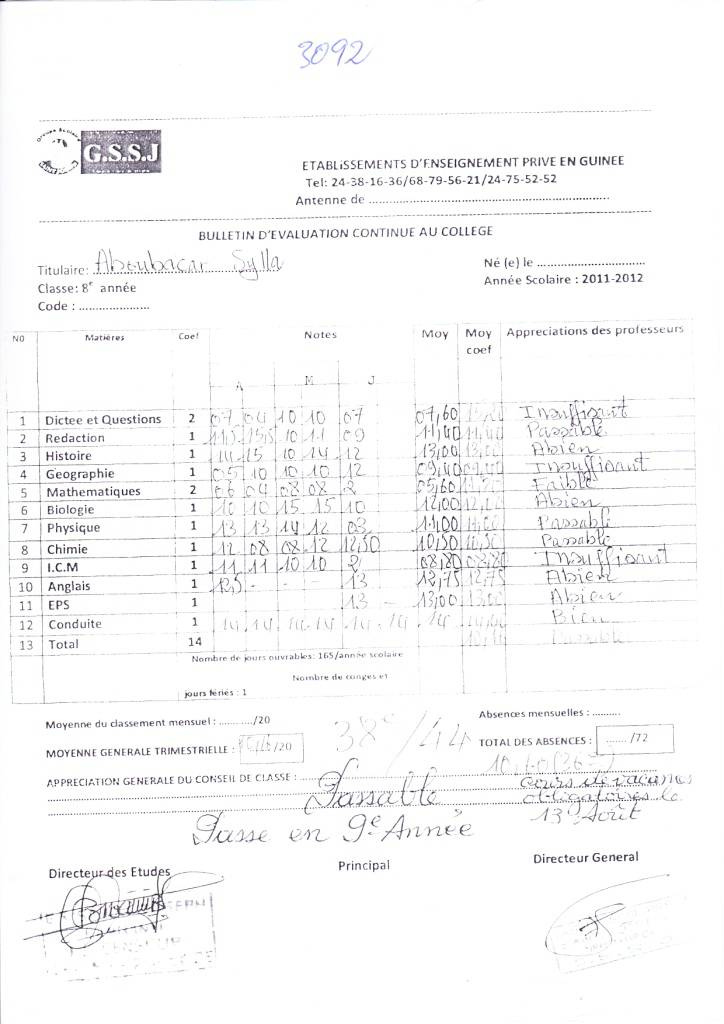 3092
G.S.S.J
ETABLISSEMENTS D'ENSEIGNEMENT PRIVE EN GUINEE
Tel: 24-38-16-36/68-79-56-21/24-75-52-52
Antenne de ........................
BULLETIN D'EVALUATION CONTINUE AU COLLEGE
Titulaire: Aboubacar Sylla
Né (e) le ........................
Classe: 8e année
Année Scolaire : 2011-2012
Code : ....................
N0 Matières Coef Notes Moy Moy coef Appreciations des professeurs
A M J
1 Dictee et Questions 2 07 04 10 10 07 07,60 Insuffisant
2 Redaction 1 11,5 15,5 10 11 09 11,40 11,40 Passable
3 Histoire 1 14 15 10 14 12 13,00 13,00 Abien
4 Geographie 1 05 10 10 10 12 09,40 09,40 Insuffisant
5 Mathematiques 2 06 04 08 08 2 05,60 Faible
6 Biologie 1 10 10 15 15 10 12,00 12,00 Abien
7 Physique 1 13 13 14 12 03 11,00 11,00 Passable
8 Chimie 1 12 08 08 12 12,50 10,50 10,50 Passable
9 I.C.M 1 11 11 10 10 2 08,80 08,80 Insuffisant
10 Anglais 1 12,5 - - - 13 12,75 12,75 Abien
11 EPS 1 13 - 13,00 13,00 Abien
12 Conduite 1 14 14 14 14 14 14 14 Bien
13 Total 14 10,40 Passable
Nombre de jours ouvrables: 165/année scolaire
Nombre de conges et
jours fériés : 1
Moyenne du classement mensuel : .........../20
Absences mensuelles : .........
MOYENNE GENERALE TRIMESTRIELLE : /20
38e/44
TOTAL DES ABSENCES : ....... /72
10,40 (36e)
APPRECIATION GENERALE DU CONSEIL DE CLASSE : Passable
cours de vacances
obligatoires le
13 Août
Passe en 9e Année
Directeur des Etudes
Principal
Directeur General